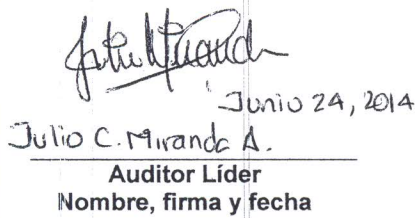 Julio Miranda
Junio 24, 2014
Julio C. Miranda A.
Auditor Líder
Nombre, firma y fecha